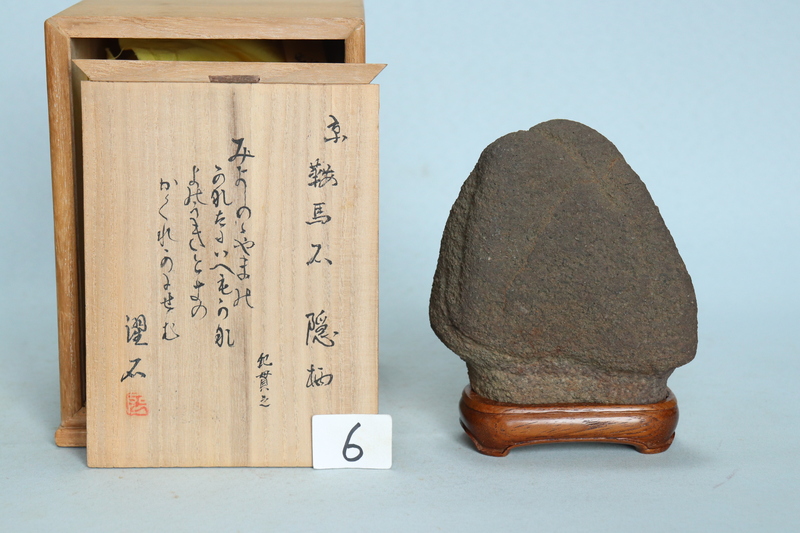 京 鞍馬石 隠栖
みよしのゝやまの
あなたにいへもかな
よのうきときの
かくれかにせむ
紀貫之
濯石
6